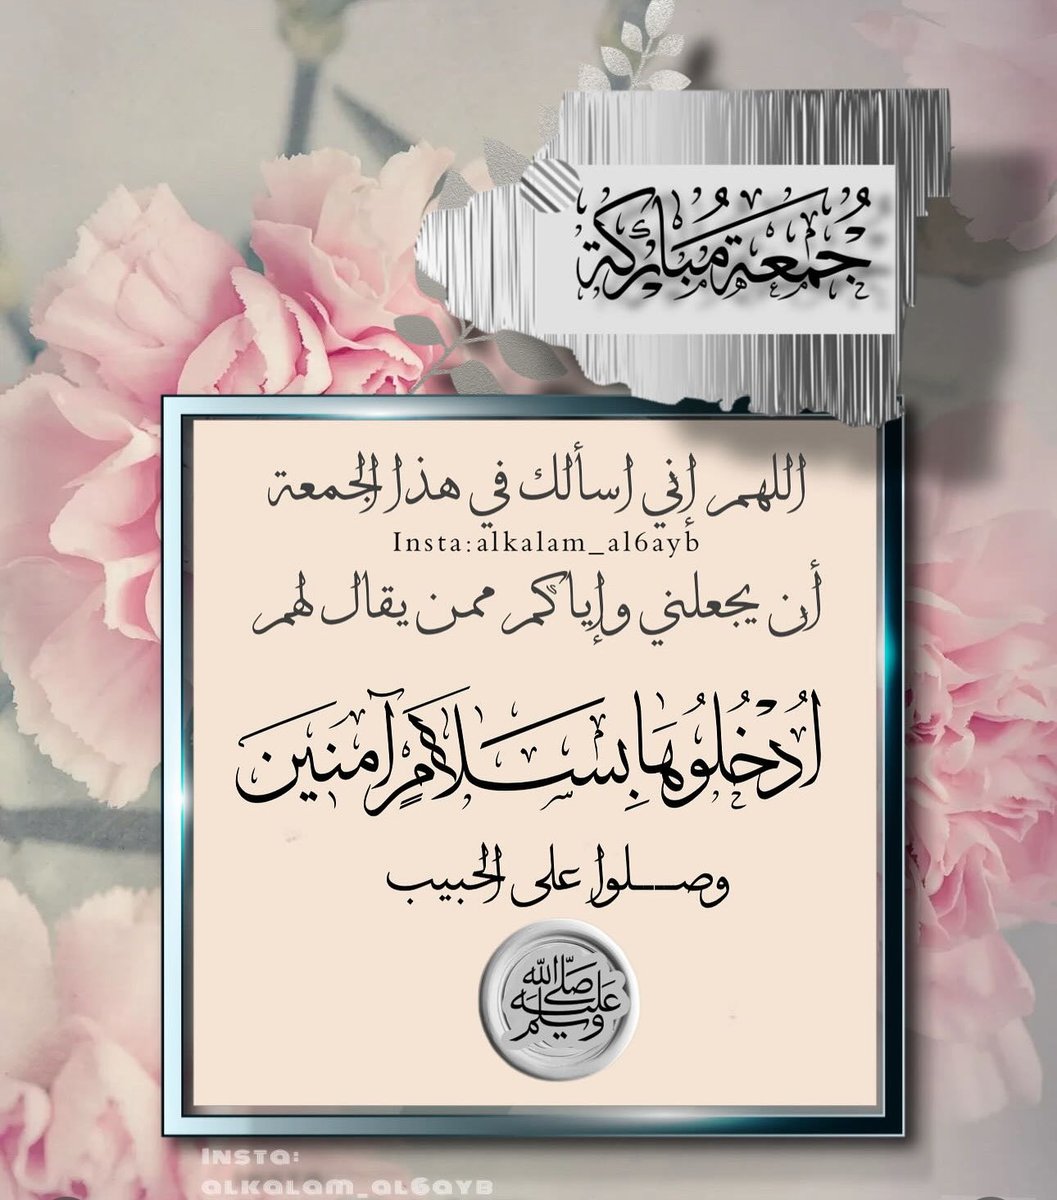 جُمعة مُباركة
اللهم إني اسألك في هذا الجمعة
Insta:alkalam_al6ayb
أن يجعلني وإياكم ممن يقال لهم
اُدْخُلُوهَا بِسَلَامٍ آمِنَين
وصـلوا على الحبيب
صَلَّى الله عَليْه وسلم
Insta:
alkalam_al6ayb